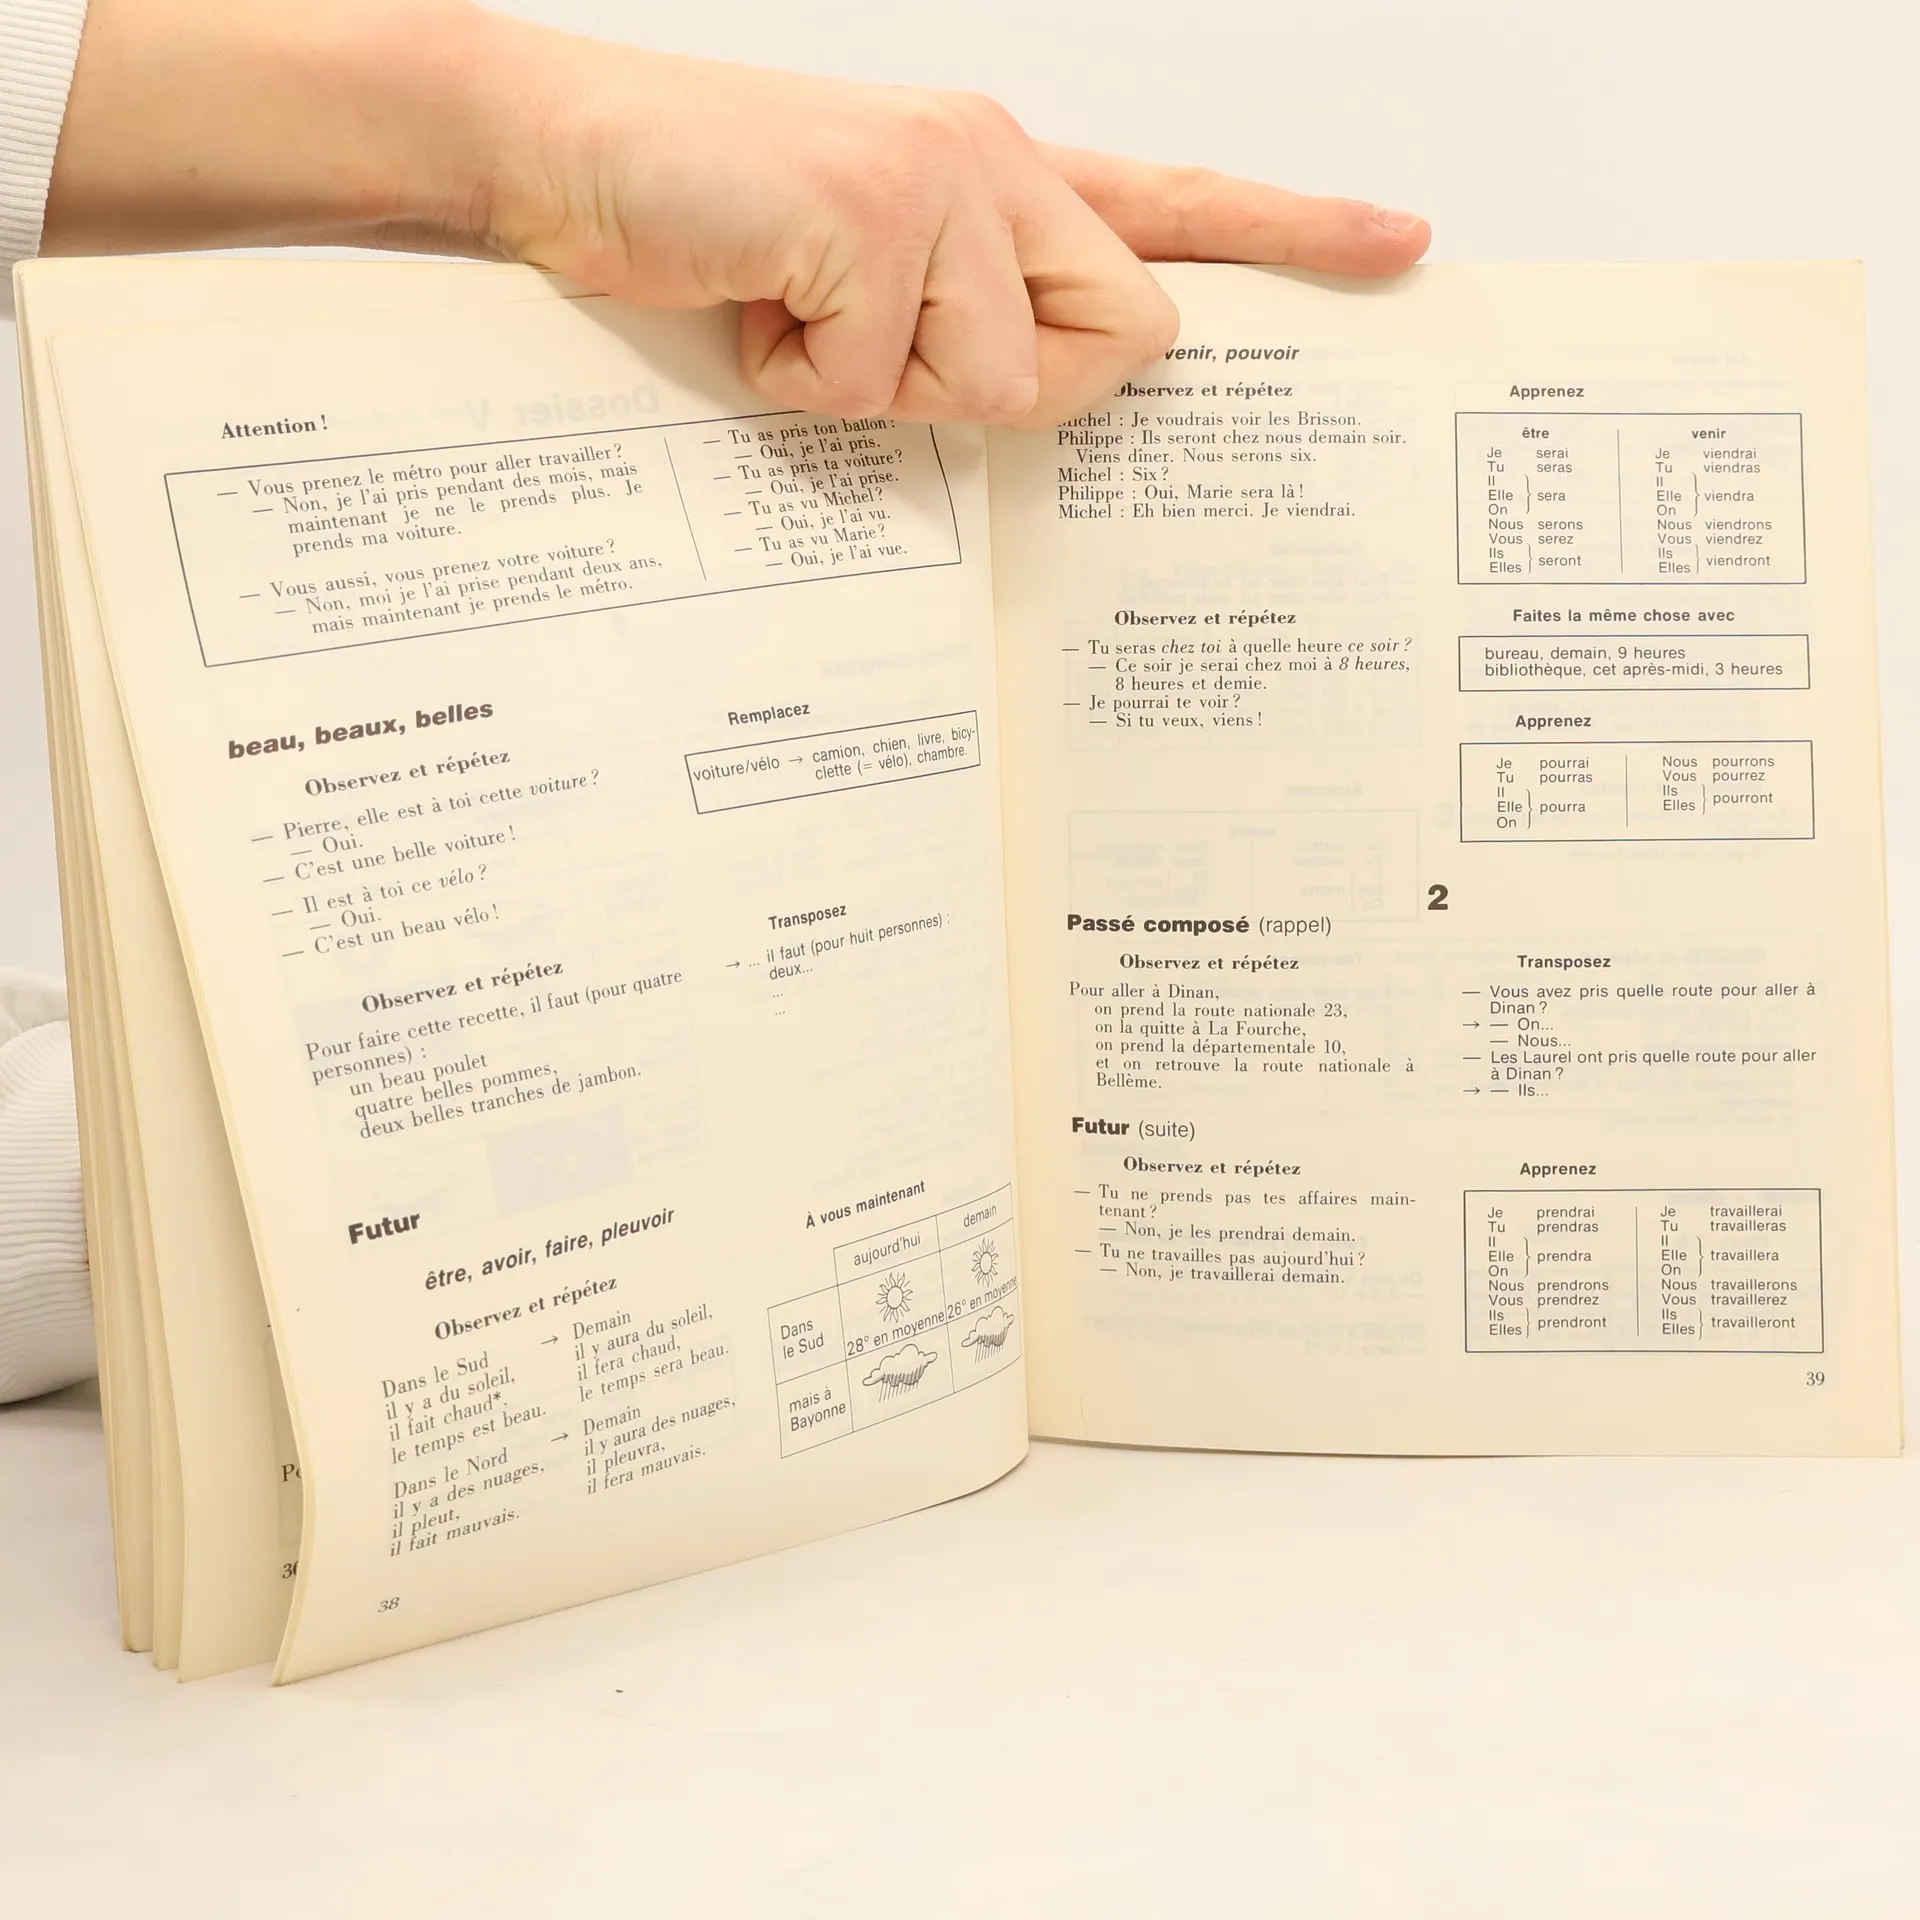 Attention !
— Vous prenez le métro pour aller travailler ?
— Non, je l'ai pris pendant des mois, mais
maintenant je ne le prends plus. Je
prends ma voiture.
— Vous aussi, vous prenez votre voiture ?
— Non, moi je l'ai prise pendant deux ans,
mais maintenant je prends le métro.
— Tu as pris ton ballon ?
— Oui, je l'ai pris.
— Tu as pris ta voiture ?
— Oui, je l'ai prise.
— Tu as vu Michel ?
— Oui, je l'ai vu.
— Tu as vu Marie ?
— Oui, je l'ai vue.
beau, beaux, belles
Observez et répétez
— Pierre, elle est à toi cette voiture ?
— Oui.
— C'est une belle voiture !
— Il est à toi ce vélo ?
— Oui.
— C'est un beau vélo !
Remplacez
voiture/vélo → camion, chien, livre, bicy-
clette (= vélo), chambre.
Observez et répétez
Pour faire cette recette, il faut (pour quatre
personnes) :
un beau poulet
quatre belles pommes,
deux belles tranches de jambon.
Transposez
→ ... il faut (pour huit personnes) :
deux...
...
...
Futur
être, avoir, faire, pleuvoir
Observez et répétez
Dans le Sud
il y a du soleil,
il fait chaud*,
le temps est beau.
→ Demain
il y aura du soleil,
il fera chaud,
le temps sera beau.
Dans le Nord
il y a des nuages,
il pleut,
il fait mauvais.
→ Demain
il y aura des nuages,
il pleuvra,
il fera mauvais.
À vous maintenant
aujourd'hui demain
Dans
le Sud
28° en moyenne 26° en moyenne
mais à
Bayonne
38
venir, pouvoir
Observez et répétez
Michel : Je voudrais voir les Brisson.
Philippe : Ils seront chez nous demain soir.
Viens dîner. Nous serons six.
Michel : Six ?
Philippe : Oui, Marie sera là !
Michel : Eh bien merci. Je viendrai.
Apprenez
être
Je serai
Tu seras
Il
Elle sera
On
Nous serons
Vous serez
Ils
Elles seront
venir
Je viendrai
Tu viendras
Il
Elle viendra
On
Nous viendrons
Vous viendrez
Ils
Elles viendront
Observez et répétez
— Tu seras chez toi à quelle heure ce soir ?
— Ce soir je serai chez moi à 8 heures,
8 heures et demie.
— Je pourrai te voir ?
— Si tu veux, viens !
Faites la même chose avec
bureau, demain, 9 heures
bibliothèque, cet après-midi, 3 heures
Apprenez
Je pourrai
Tu pourras
Il
Elle pourra
On
Nous pourrons
Vous pourrez
Ils
Elles pourront
2
Passé composé (rappel)
Observez et répétez
Pour aller à Dinan,
on prend la route nationale 23,
on la quitte à La Fourche,
on prend la départementale 10,
et on retrouve la route nationale à
Bellème.
Transposez
— Vous avez pris quelle route pour aller à
Dinan ?
→ — On...
— Nous...
— Les Laurel ont pris quelle route pour aller
à Dinan ?
→ — Ils...
Futur (suite)
Observez et répétez
— Tu ne prends pas tes affaires main-
tenant ?
— Non, je les prendrai demain.
— Tu ne travailles pas aujourd'hui ?
— Non, je travaillerai demain.
Apprenez
Je prendrai
Tu prendras
Il
Elle prendra
On
Nous prendrons
Vous prendrez
Ils
Elles prendront
Je travaillerai
Tu travailleras
Il
Elle travaillera
On
Nous travaillerons
Vous travaillerez
Ils
Elles travailleront
39